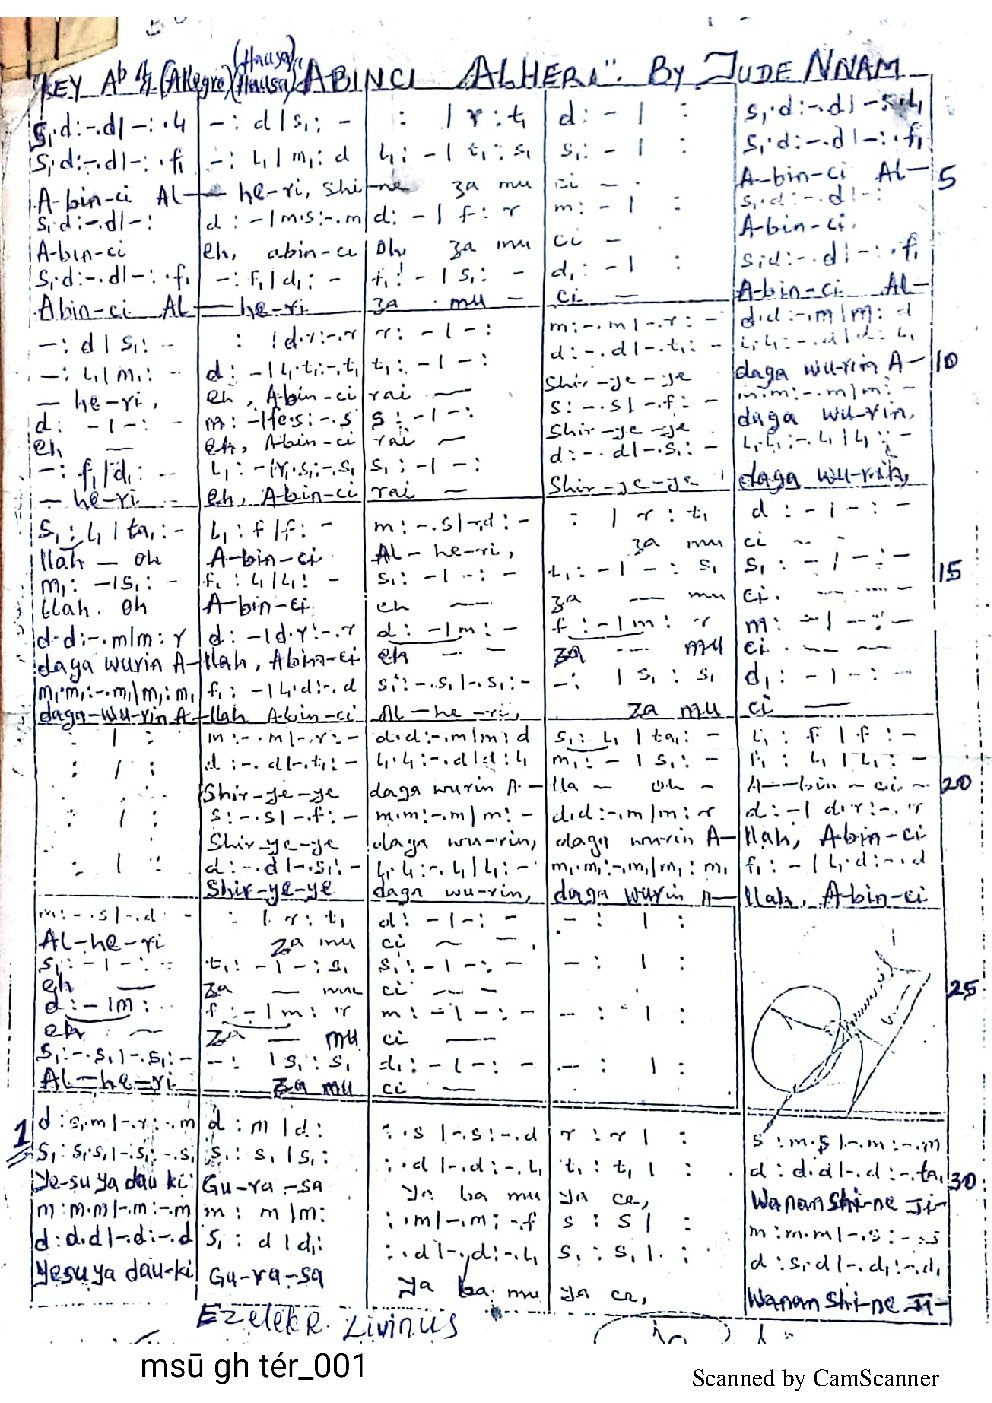 (Hausa)
"KEY Ab 4/4 (Allegro) (Hausa) "ABINCI ALHERI". By JUDE NNAM
s₁.d:-.d|-:.l₁ -:d|s₁:- : |r:t₁ d:-| : s₁.d:-.d|-:.l₁
s₁.d:-.d|-:.f₁ -:l₁|m₁:d l₁:-|t₁:s₁ s₁:-| : s₁.d:-.d|-:.f₁
A-bin-ci Al— he-ri, shi-ne za mu ci - A-bin-ci Al— 5
s.d:-.d|-: d:-|m.s:-.m d:-|f:r m:-| : s.d:-.d|-:
A-bin-ci eh, abin-ci oh, za mu ci - A-bin-ci.
s.d:-.d|-:.f₁ -:f₁|d₁:- f₁:-|s₁:- d₁:-| : s.d:-.d|-:.f₁
Abin-ci Al— he-ri za mu - ci — A-bin-ci Al-
-:d|s₁:- : |d.r:-.r r:-|-: m:-.m|-.r:- d.d:-.m|m:d
-:l₁|m₁:- d:-|l₁.t₁:-.t₁ t₁:-|-: d:-.d|-.t₁:- l₁.l₁:-.d|d:l₁
— he-ri, eh, Abin-ci rai — Shir-ye-ye daga wu-rin A- 10
d:-|-: m:-|fe.s:-.s s:-|-: s:-.s|-.f:- m.m:-.m|m:-
eh — eh, Abin-ci rai — Shir-ye-ye daga wu-rin,
-:f₁|d₁:- l₁:-|r₁.s₁:-.s₁ s₁:-|-: d:-.d|-.s₁:- l₁.l₁:-.l₁|l₁:-
— he-ri eh, Abin-ci rai — Shir-ye-ye daga wu-rin,
s₁:l₁|ta₁:- l₁:f|f:- m:-.s|-.d:- : |r:t₁ d:-|-:-
llah — oh A-bin-ci Al-he-ri, za mu ci -
m₁:-|s₁:- f₁:l₁|l₁:- s₁:-|-:- t₁:-|-:s₁ s₁:-|-:- 15
llah. oh A-bin-ci eh — za — mu ci. —
d.d:-.m|m:r d:-|d.r:-.r d:-|m:- f:-|m:r m:-|-:-
daga wurin A-llah, Abin-ci eh — za — mu ci —
m₁.m₁:-.m₁|m₁:m₁ f₁:-|l₁.d:-.d s₁:-.s₁|-.s₁:- -: |s₁:s₁ d₁:-|-:-
daga-wu-rin A-llah Abin-ci Al-he-ri, za mu ci —
: | : m:-.m|-.r:- d.d:-.m|m:d s₁:l₁|ta₁:- l₁:f|f:-
: | : d:-.d|-.t₁:- l₁.l₁:-.d|d:l₁ m₁:-|s₁:- f₁:l₁|l₁:-
Shir-ye-ye daga wurin A- lla — oh - A—bin-ci - 20
: | : s:-.s|-.f:- m.m:-.m|m:- d.d:-.m|m:r d:-|d.r:-.r
Shir-ye-ye daga wu-rin, daga wurin A—llah, Abin-ci
: | : d:-.d|-.s₁:- l₁.l₁:-.l₁|l₁:- m₁.m₁:-.m₁|m₁:m₁ f₁:-|l₁.d:-.d
Shir-ye-ye daga wu-rin, daga wurin A—llah, A-bin-ci
m:-.s|-.d:- : |r:t₁ d:-|-:- -: | :
Al-he-ri za mu ci -
s₁:-|-:- t₁:-|-:s₁ s₁:-|-:- -: | :
eh — za — mu ci — 25
d:-|m: f:-|m:r m:-|-:- -: | :
eh — za — mu ci —
s₁:-.s₁|-.s₁:- -: |s₁:s₁ d₁:-|-:- -: | :
Al-he-ri za mu ci —
1 d:s,m|-.r:-.m d:m|d: :.s|-.s:-.d r:r| : s:m.s|-.m:-.m
s₁:s₁s₁|-.s₁:-.s₁ s₁:s₁|s₁: :.d|-.d:-.l₁ t₁:t₁| : d:d.d|-.d:-.ta₁
Ye-su ya dau ki Gu-ra-sa Ya ba mu ya ce, Wanan Shi-ne Ji- 30
m:m.m|-.m:-.m m:m|m: :.m|-.m:-.f s:s| : m:m.m|-.s:-.s
d:d.d|-.d:-.d s₁:d|d: :.d|-.d:-.l₁ s₁:s₁| : d:s.d|-.d₁:-.d₁
Yesu ya dau-ki Gu-ra-sa Ya ba mu ya ce, Wanan Shi-ne Ji-
Ezeteke. Livinus
msū gh tér_001
Scanned by CamScanner